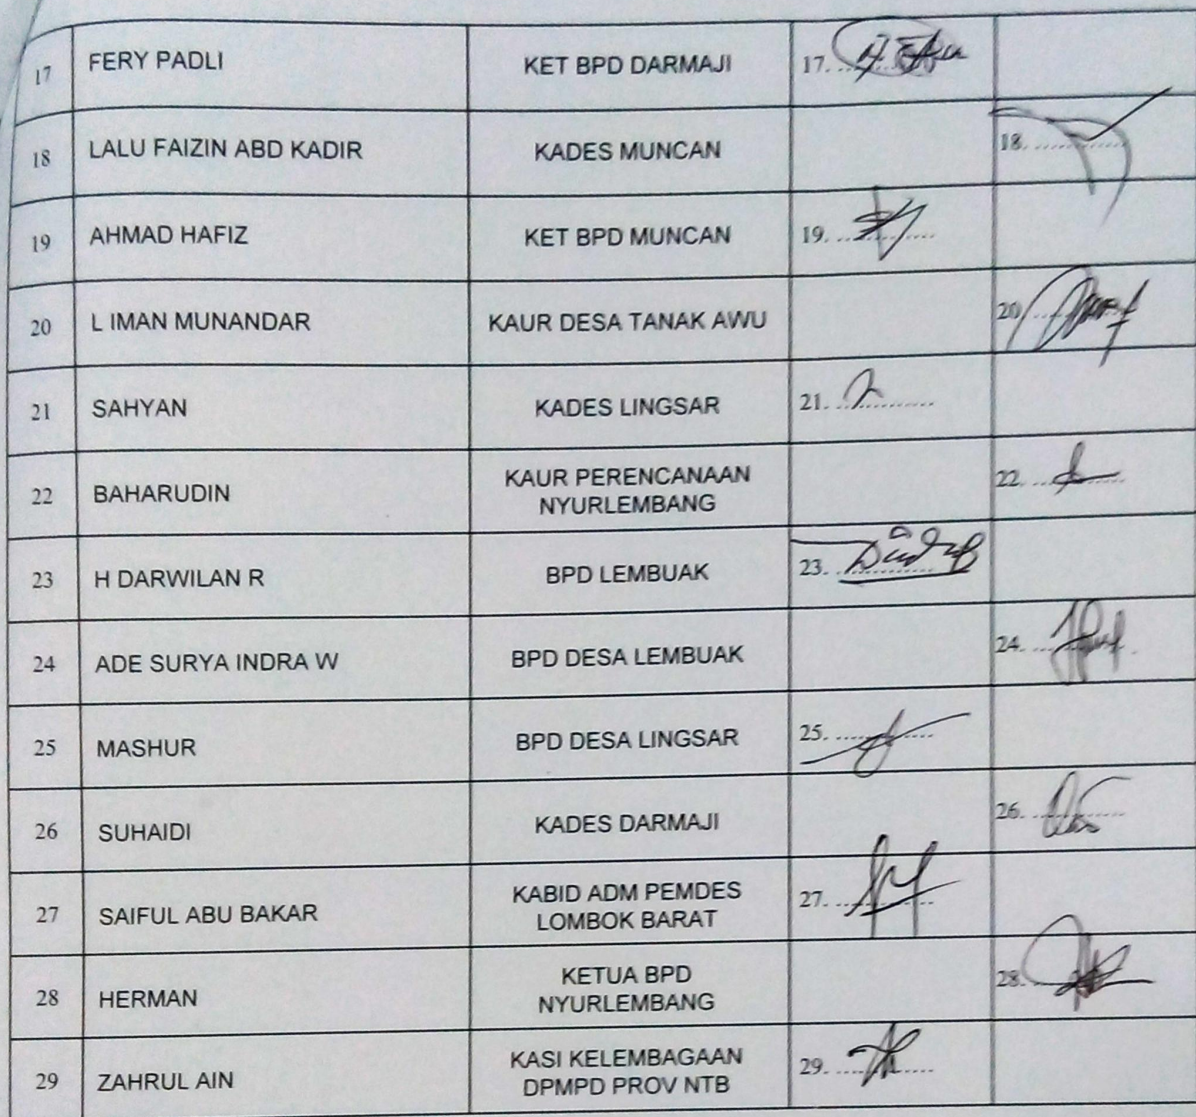 17 FERY PADLI KET BPD DARMAJI 17. ............
18 LALU FAIZIN ABD KADIR KADES MUNCAN 18. ............
19 AHMAD HAFIZ KET BPD MUNCAN 19. ............
20 L IMAN MUNANDAR KAUR DESA TANAK AWU 20 ............
21 SAHYAN KADES LINGSAR 21. ............
22 BAHARUDIN KAUR PERENCANAAN 22. ............
NYURLEMBANG
23 H DARWILAN R BPD LEMBUAK 23. ............
24 ADE SURYA INDRA W BPD DESA LEMBUAK 24. ............
25 MASHUR BPD DESA LINGSAR 25. ............
26 SUHAIDI KADES DARMAJI 26. ............
27 SAIFUL ABU BAKAR KABID ADM PEMDES 27. ............
LOMBOK BARAT
28 HERMAN KETUA BPD 28. ............
NYURLEMBANG
29 ZAHRUL AIN KASI KELEMBAGAAN 29. ............
DPMPD PROV NTB